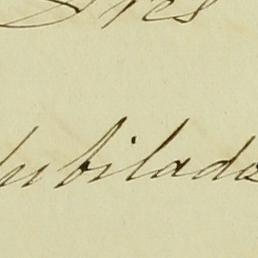 Tres
Jubilado